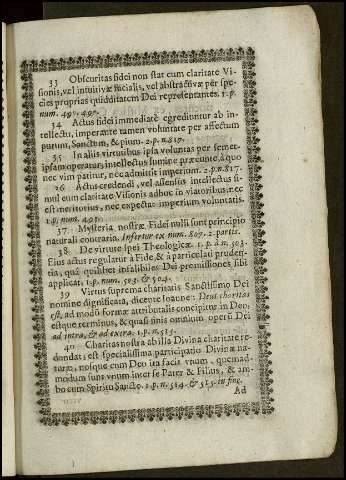 33 Obscuritas fidei non stat cum claritate Vi-
sionis, vel intuitivæ facialis, vel abstractivæ per spe-
cies proprias quidditatem Dei representantes. 1. p.
num. 495. 497.
34 Actus fidei immediatè egrediuntur ab in-
tellectu, imperante tamen voluntate per affectum
purum, Sanctum, & pium. 2. p. n. 819.
35 In alijs virtutibus ipsa voluntas per semet-
ipsam operatur, intellectus lumine præeunte, à quo
nec vim patitur, nec admittit imperium. 2. p. n. 817.
36 Actus credendi, vel assensus intellectus si-
mul cum claritate Visionis adhuc in viatoribus, nec
est meritorius, nec expectat imperium voluntatis.
1. p. num. 491.
37 Mysteria nostræ Fidei nulli sunt principio
naturali contraria. Infertur ex num. 807. 2. partis.
38 De virtute spei Theologicæ. 1. p. à n. 503.
Eius actus regulatur à Fide, & à particulari pruden-
tia, quâ quilibet infalibiles Dei promissiones sibi
applicat. 1. p. num. 503. & 504.
39 Virtus suprema charitatis Sanctissimo Dei
nomine dignificata, dicente Ioanne: Deus charitas
est, ad modum formæ attributalis concipitur in Deo,
estque terminus, & quasi finis omnium operũ Dei
ad intra, & ad extra. 1. p. n. 513.
40 Charitas nostra ab illa Divina charitate re-
dundat; est specialissima participatio Divinæ na-
turæ, nosque cum Deo ita facit vnum, quemad-
modum sunt vnum inter se Pater & Filius, & am-
bo cum Spiritu Sancto. 1. p. n. 514. & 515. in fine.
Ad